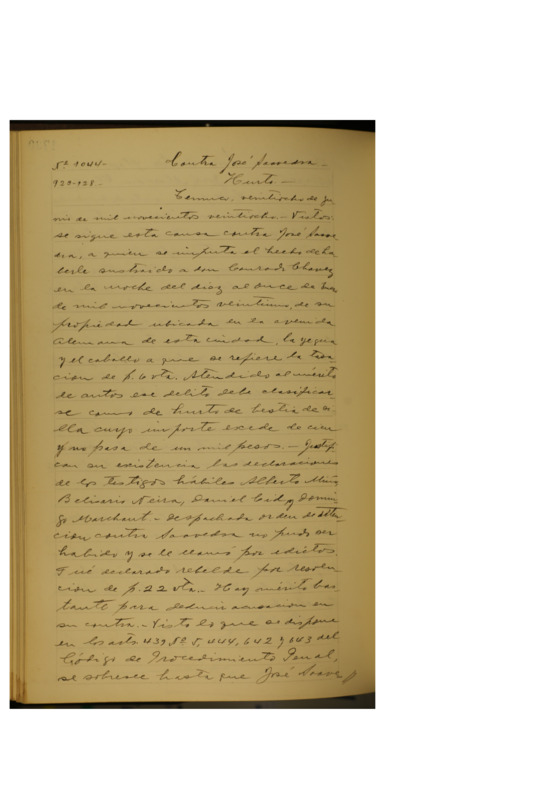 Nº 1044.- Contra José Saavedra.-
929-928.- Hurto.-
Temuco, veintiocho de ju
nio de mil novecientos veintiocho.- Vistos:
se sigue esta causa contra José Saave
dra, a quien se imputa el hecho de ha
berle sustraido a don Conrado Chavez
en la noche del diez al once de
de mil novecientos veintiuno, de su
propiedad ubicada en la avenida
Alemana de esta ciudad, la yegua
y el caballo a que se refiere la tasa
cion de f. 6 vta. Atendido al mérito
de autos ese delito debe clasificar
se como de hurto de bestia de si
lla cuyo importe excede de cien
y no pasa de un mil pesos.- Justifi
can su existencia las declaraciones
de los testigos hábiles Alberto Muñoz
Belisario Neira, Daniel Cid y Domin
go Marchant.- Despachada orden de
cion contra Saavedra no pudo ser
habido y se le llamó por edictos.
Fué declarado rebelde por resolu-
cion de f. 22 vta.- Hay mérito bas
tante para deducir acusacion en
su contra.- Visto lo que se dispone
en los arts 439, Nº 5, 444, 642 y 643 del
Código de Procedimiento Penal,
se sobresee hasta que José Saave